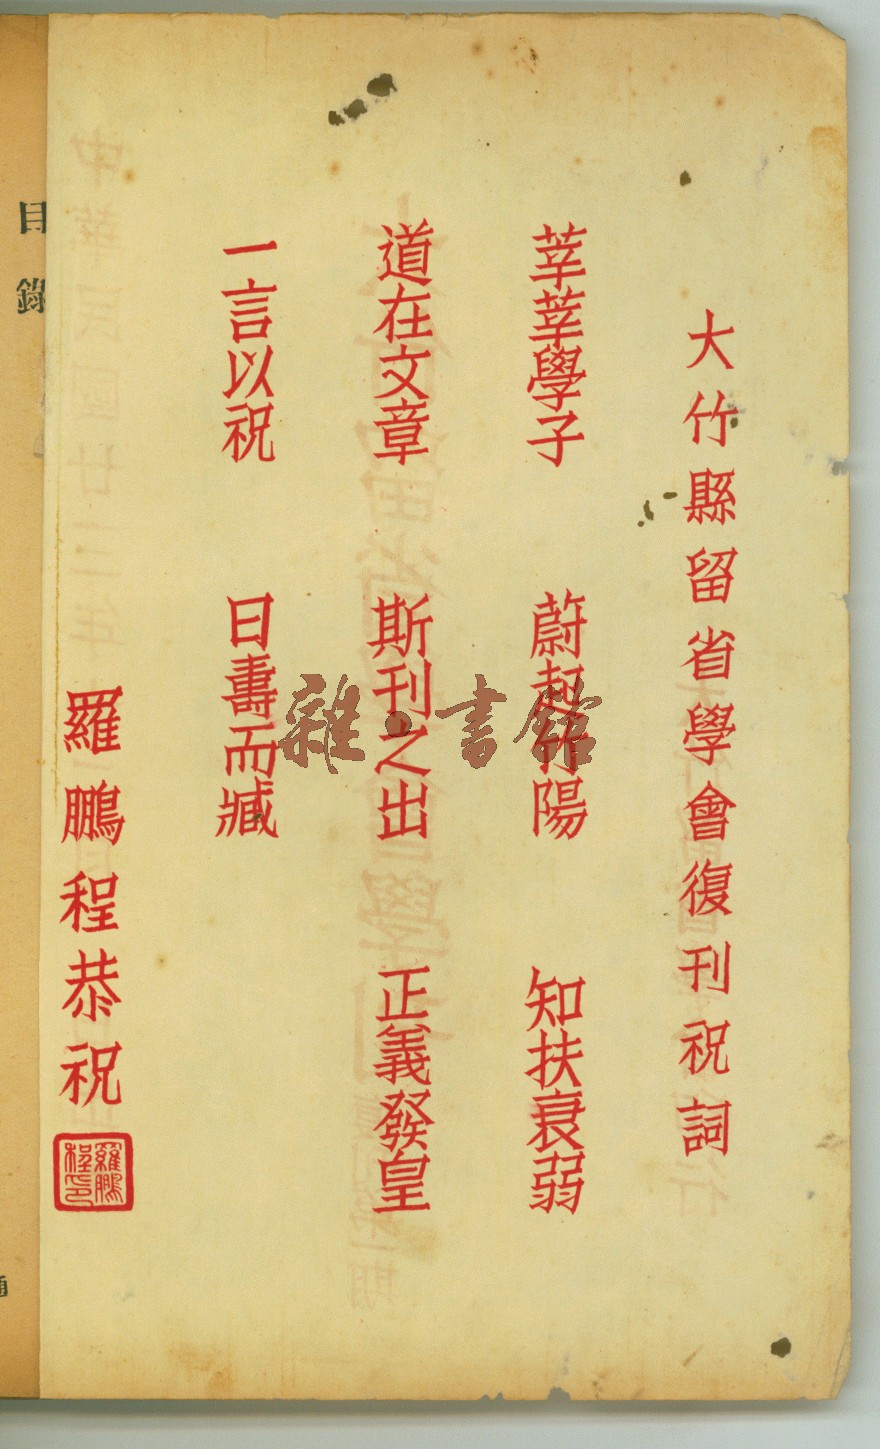 大竹縣留省學會復刊祝詞
莘莘學子 蔚起竹陽 知扶衰弱
道在文章 斯刊之出 正義發皇
一言以祝 曰壽而臧
羅鵬程恭祝
羅鵬程印
目錄
雜·書館